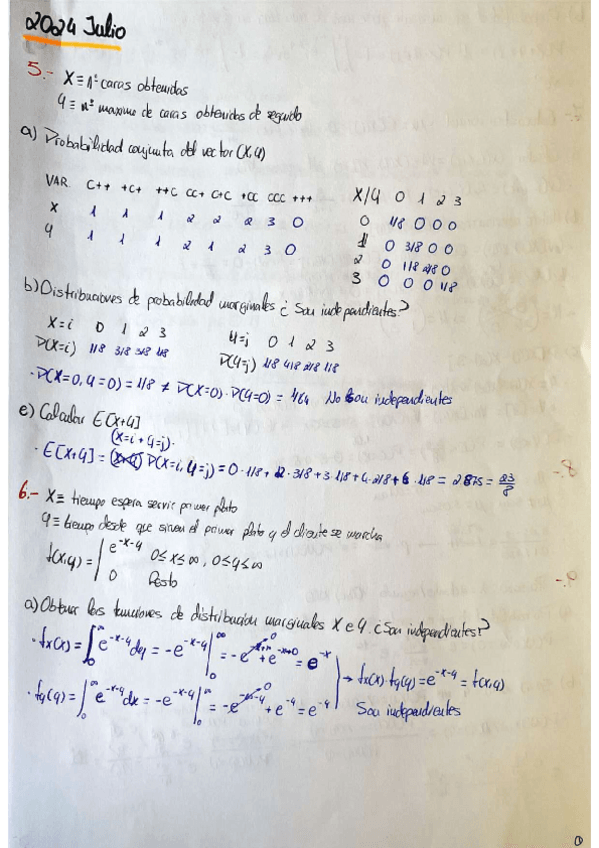 2024 Julio
5.- X ≡ nº caras obtenidas
Y ≡ nº maximo de caras obtenidas de seguido
a) Probabilidad conjunta del vector (X,Y)
VAR. C++ +C+ ++C CC+ C+C +CC CCC +++
X 1 1 1 2 2 2 3 0
Y 1 1 1 2 1 2 3 0
X/Y 0 1 2 3
0 1/8 0 0 0
1 0 3/8 0 0
2 0 1/8 2/8 0
3 0 0 0 1/8
b) Distribuciones de probabilidad marginales ¿Son independientes?
X=i 0 1 2 3
P(X=i) 1/8 3/8 3/8 1/8
Y=j 0 1 2 3
P(Y=j) 1/8 4/8 2/8 1/8
· P(X=0, Y=0) = 1/8 ≠ P(X=0) · P(Y=0) = 1/64 No son independientes
c) Calcular E[X+Y]
(X=i + Y=j) ·
· E[X+Y] = P(X=i, Y=j) = 0 · 1/8 + 2 · 3/8 + 3 · 1/8 + 4 · 2/8 + 6 · 1/8 = 2'875 = 23/8
6.- X ≡ tiempo espera servir primer plato
Y ≡ tiempo desde que sirven el primer plato y el cliente se marcha
f(x,y) = e^{-x-y} 0≤x≤∞, 0≤y≤∞
0 Resto
a) Obtener las funciones de distribucion marginales X e Y. ¿Son independientes?
· fx(x) = ∫₀^∞ e^{-x-y} dy = -e^{-x-y} |₀^∞ = -e^{-x-∞} + e^{-x+0} = e^{-x}
· fy(y) = ∫₀^∞ e^{-x-y} dx = -e^{-x-y} |₀^∞ = -e^{-∞-y} + e^{-y} = e^{-y}
→ fx(x) · fy(y) = e^{-x-y} = f(x,y)
Son independientes
1